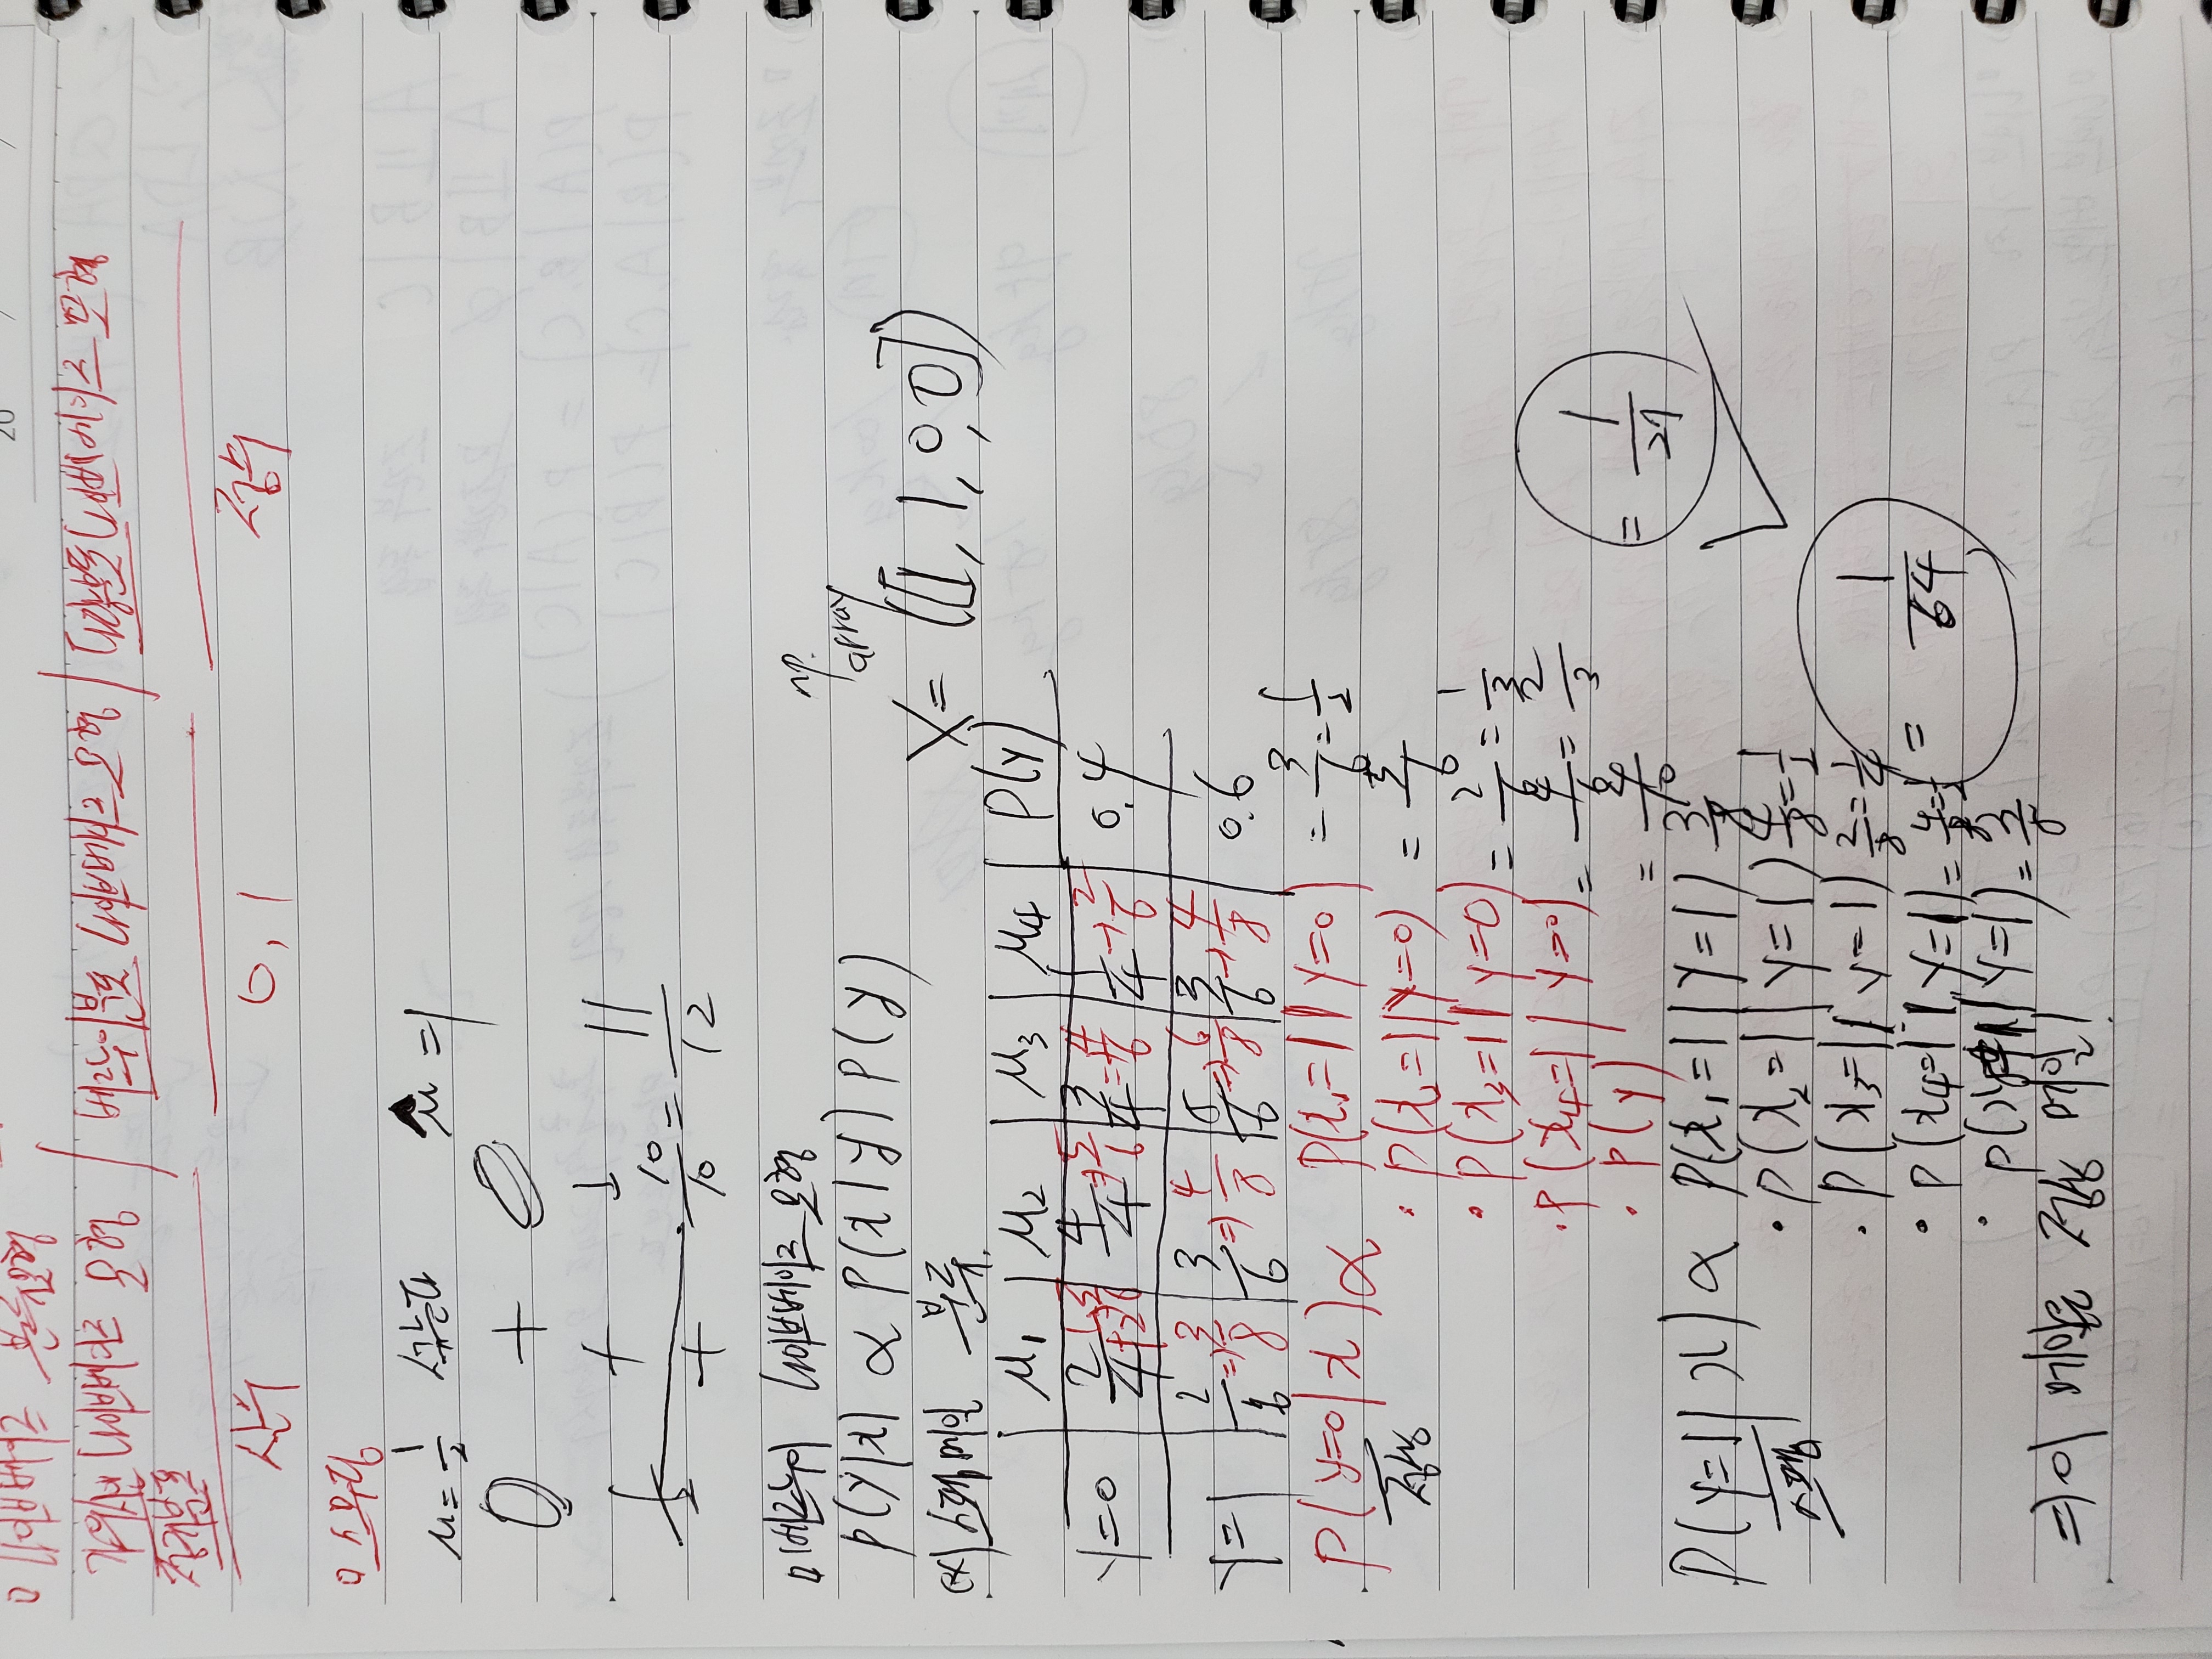 20 / /
ㅁ 나이브베이즈 분류모형
가우시안 나이브베이즈 모형 / 베르누이분포 나이브베이즈 모형 / 다항분포 나이브베이즈 모형
정규분포
실수 0, 1 정수
ㅁ 스무딩
μ = 1/2 μ = 1
0 + 0
1 + 1
2 + 10/10 = 11/12
ㅁ 베르누이 나이브베이즈 모형
P(y|x) ∝ P(x|y) P(y)
np.
array
ex) 스팸메일 분류.
X = ([1, 1, 0, 0])
μ1 μ2 μ3 μ4 P(y)
y=0 2/4 +1/+2 3/6 4/4 ⇒ 5/6 3/4 ⇒ 4/6 1/4 → 2/6 0.4
y=1 2/6 ⇒ 3/8 3/6 ⇒ 4/8 5/6 ⇒ 6/8 3/6 → 4/8 0.6
P(y=0|x) ∝ P(x1=1|y=0) = 3/6 = 1/2
정상
· P(x2=1|y=0) = 5/6
· P(x3=1|y=0) = 2/6 = 1/3
· P(x4=1|y=0) = 4/6 = 2/3
· P(y) = 4/10
= 1/27
P(y=1|x) ∝ P(x1=1|y=1) 3/8
스팸
· P(x2=1|y=1) 4/8 = 1/2
· P(x3=1|y=1) 2/8 = 1/4
· P(x4=1|y=1) = 4/8 = 1/2
= 1/64
⇒ 이 메일은 정상 메일!